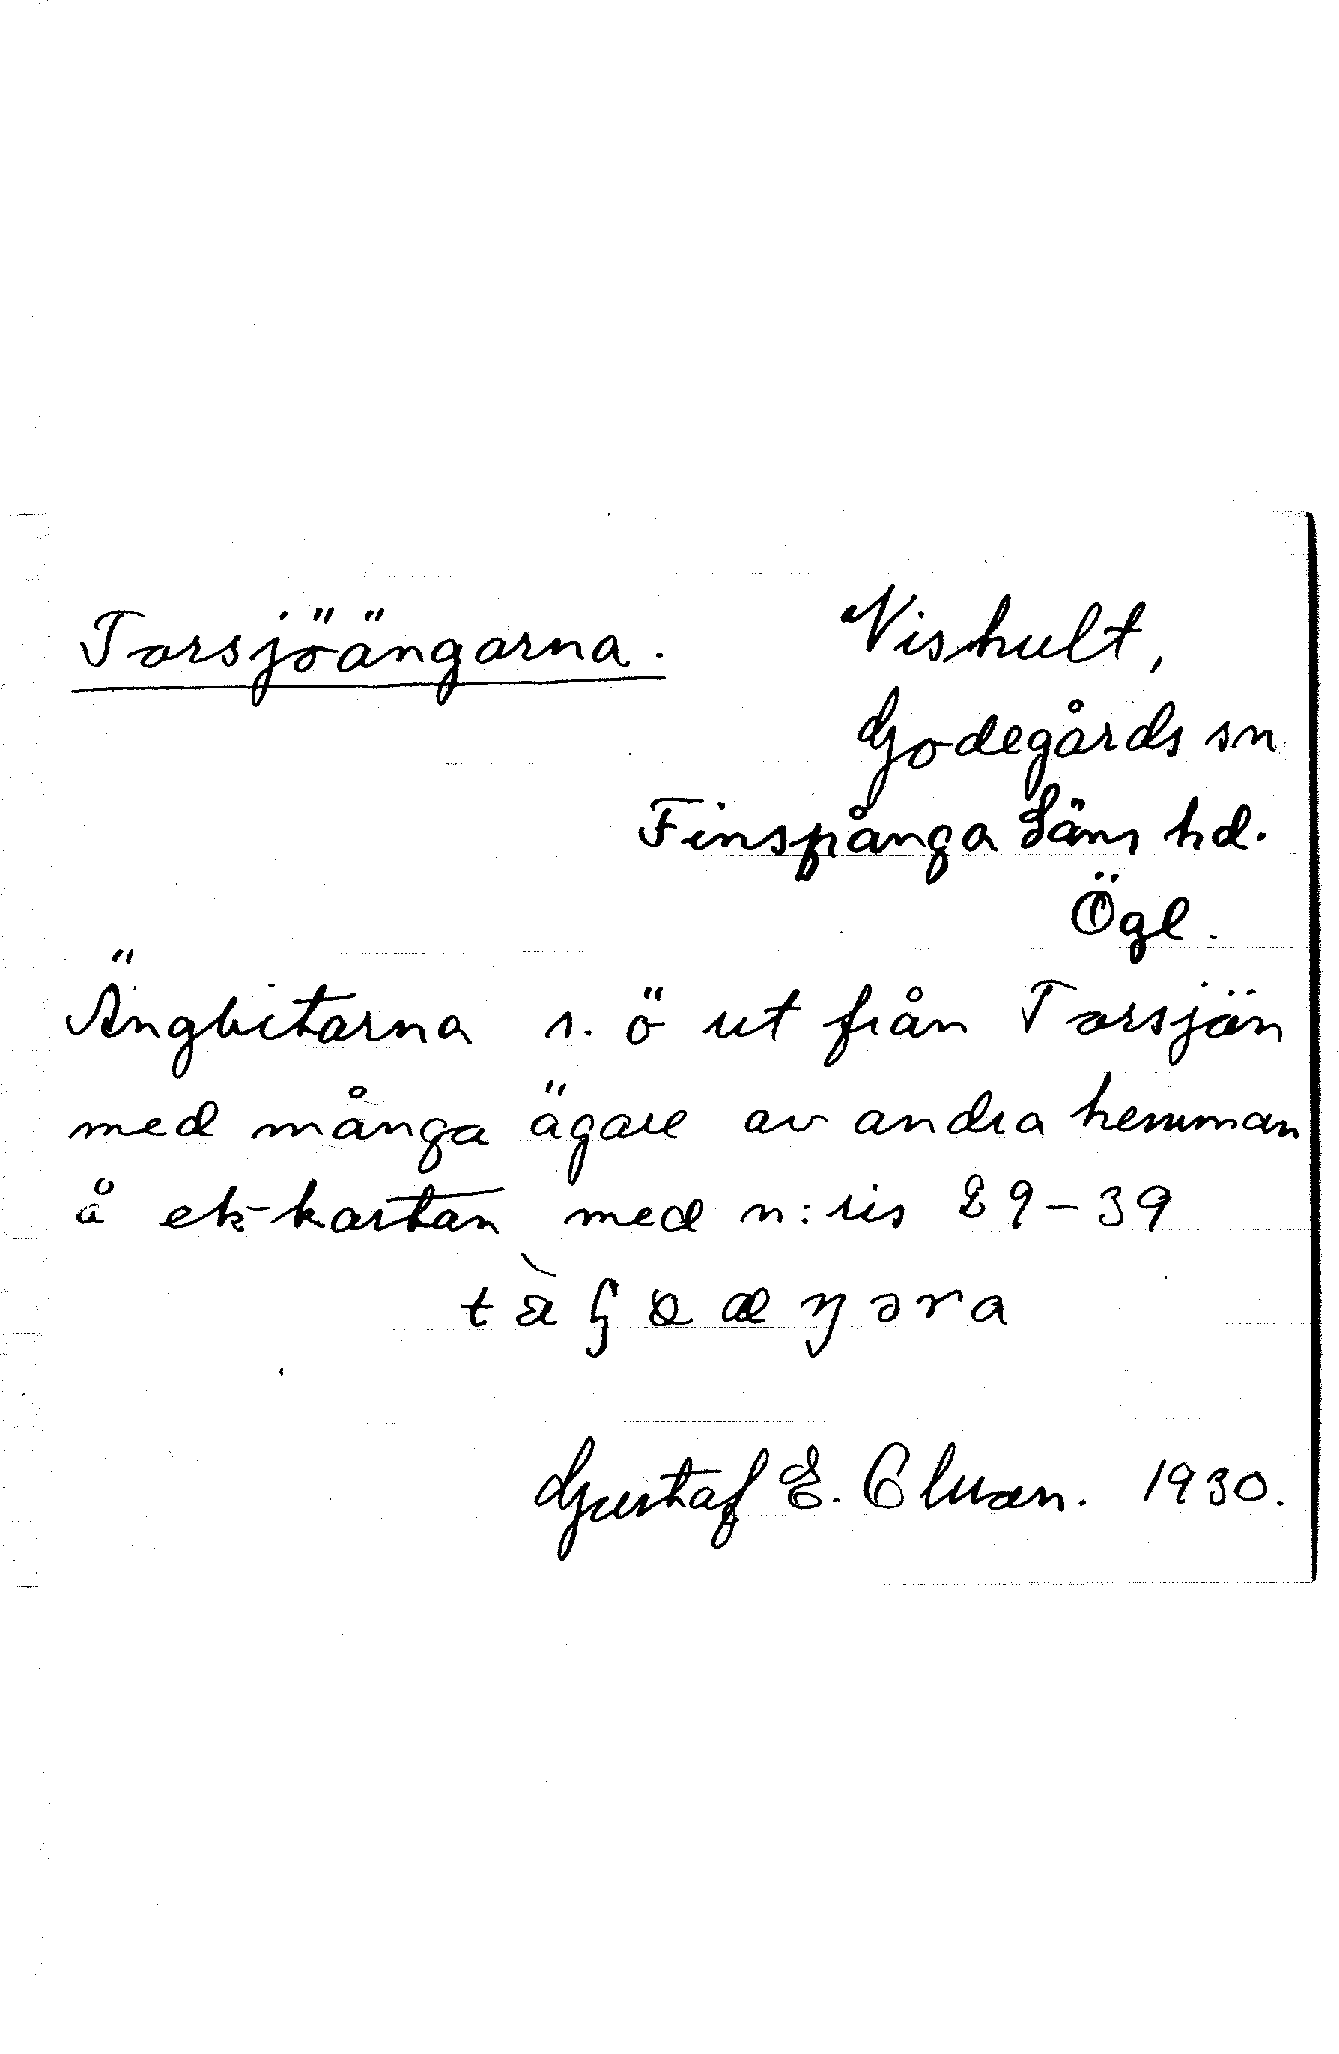 Torsjöängarna.
Vishult,
Godegårds sn
Finspånga Läns hd.
Ögl.
Ängbitarna s. ö ut från Torsjön
med många ägare av andra hemman
å ek-kartan med n:ris 29-39
Gustaf E. 1930.